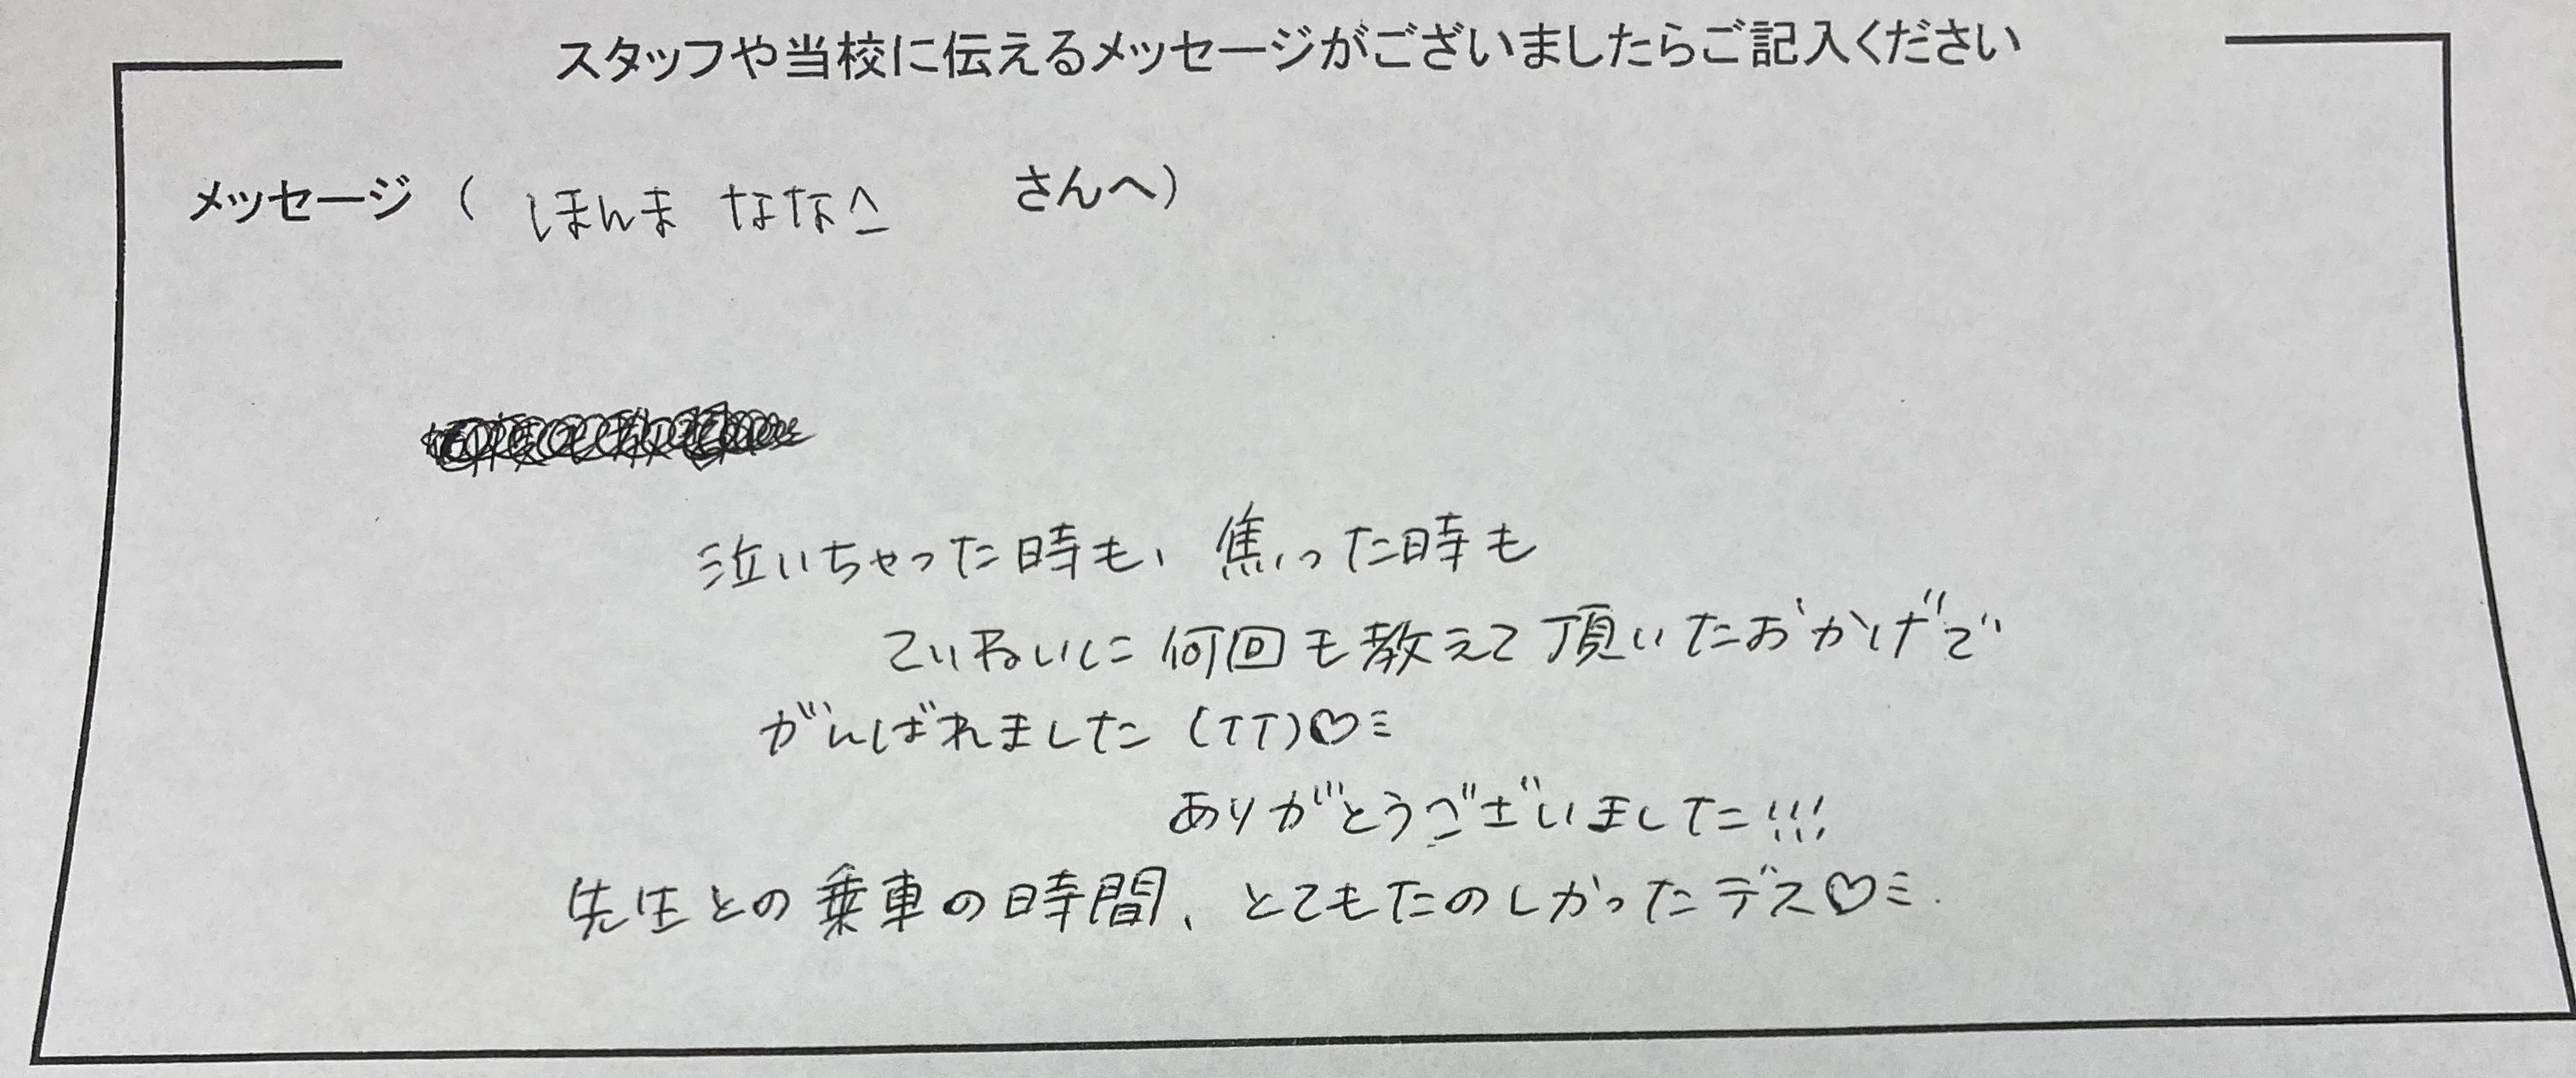 スタッフや当校に伝えるメッセージがございましたらご記入ください
メッセージ（ ほんま なな^ さんへ）
泣いちゃった時も、焦った時も
ていねいに何回も教えて頂いたおかげで
がんばれました(TT)♡ミ
ありがとうございました!!!
先生との乗車の時間、とてもたのしかったデス♡ミ.